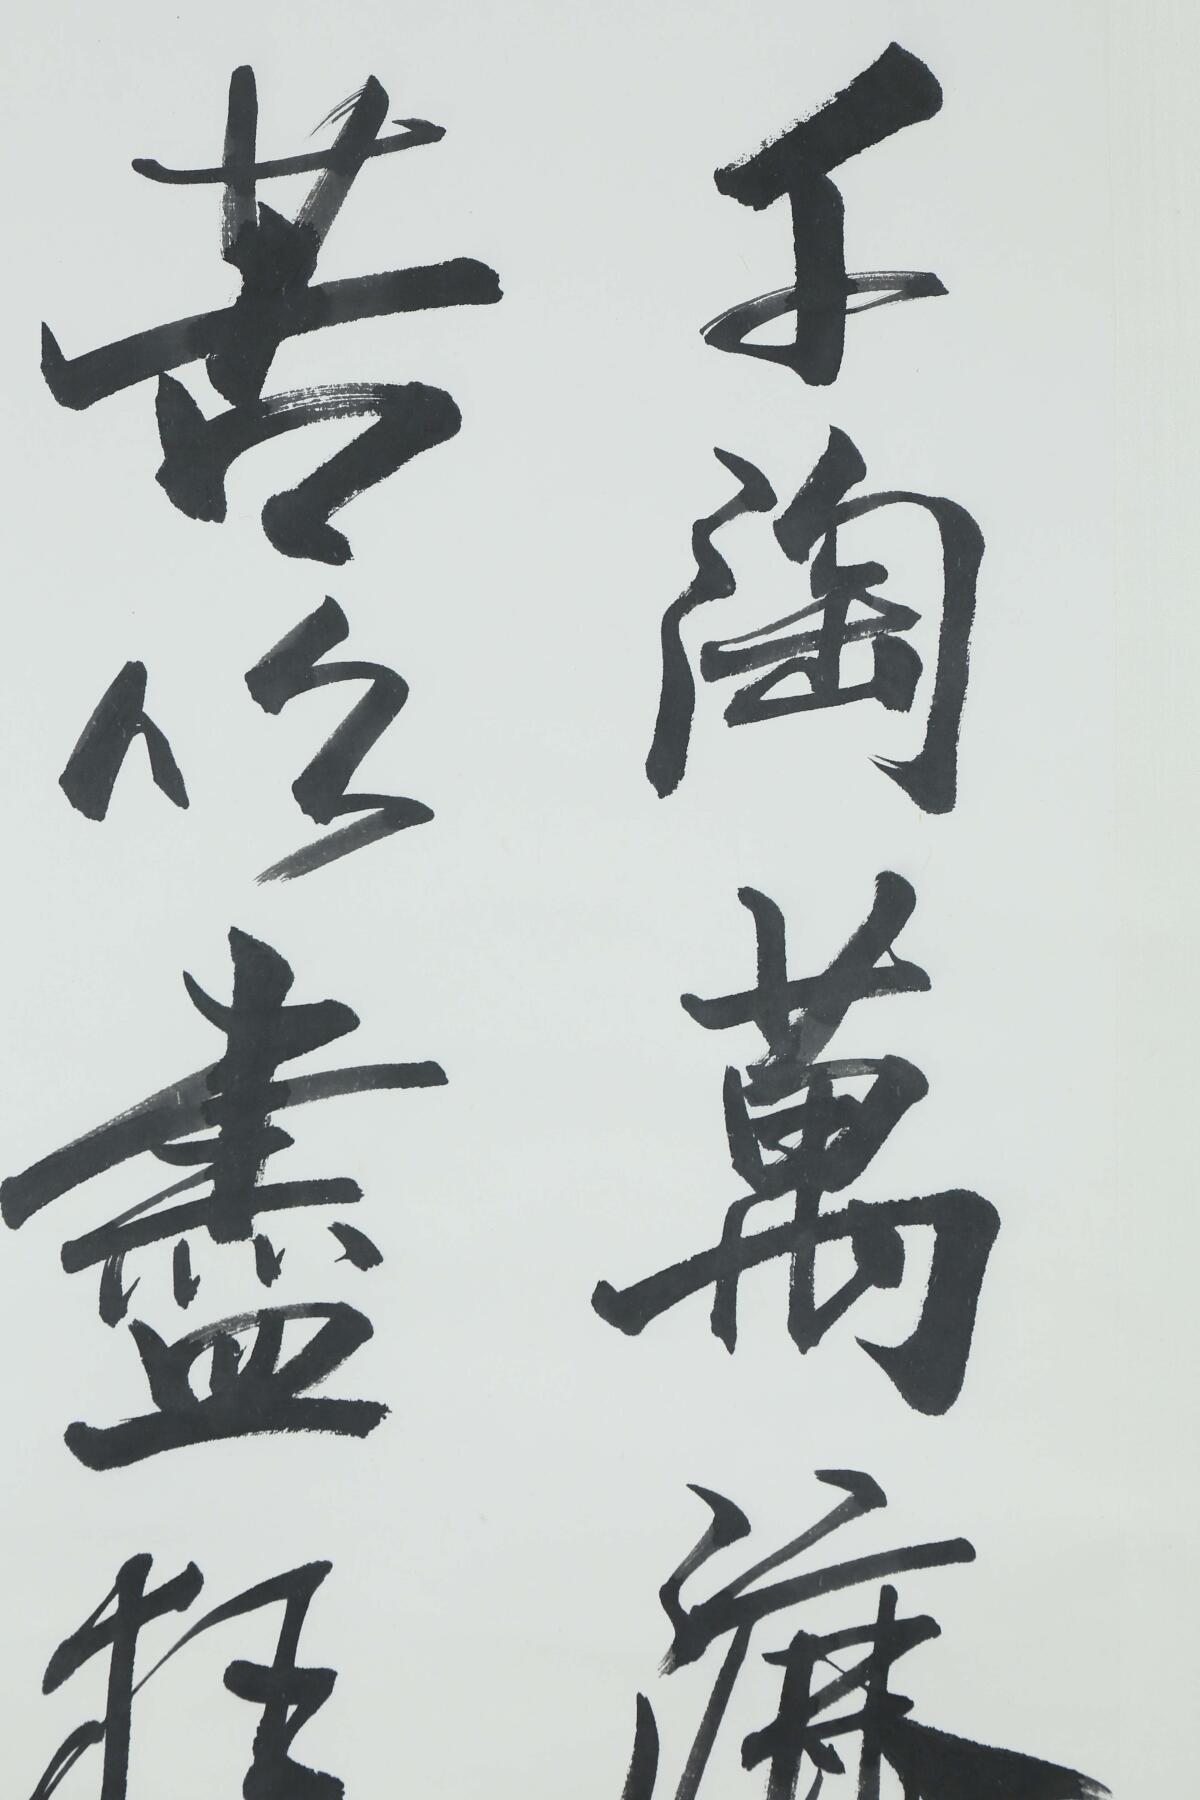 千淘萬漉
苦吹盡狂